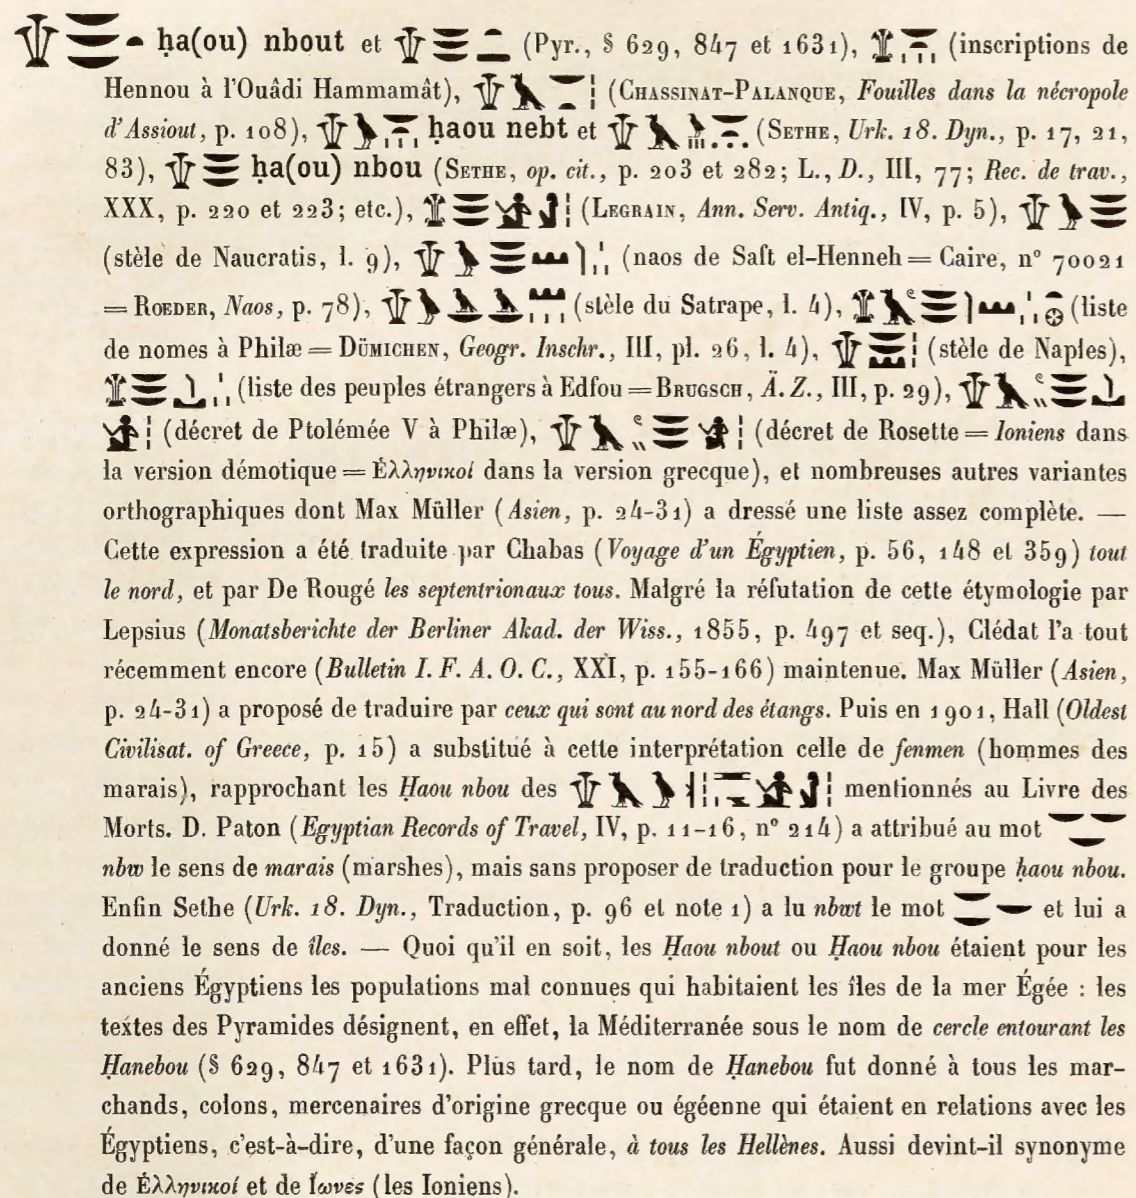 ḥa(ou) nbout et (Pyr., § 629, 847 et 1631), (inscriptions de
Hennou à l'Ouâdi Hammamât), (CHASSINAT-PALANQUE, Fouilles dans la nécropole
d'Assiout, p. 108), ḥaou nebt et (SETHE, Urk. 18. Dyn., p. 17, 21,
83), ḥa(ou) nbou (SETHE, op. cit., p. 203 et 282; L., D., III, 77; Rec. de trav.,
XXX, p. 220 et 223; etc.), (LEGRAIN, Ann. Serv. Antiq., IV, p. 5),
(stèle de Naucratis, l. 9), (naos de Saft el-Henneh = Caire, n° 70021
= ROEDER, Naos, p. 78), (stèle du Satrape, l. 4), (liste
de nomes à Philæ = DÜMICHEN, Geogr. Inschr., III, pl. 26, l. 4), (stèle de Naples),
(liste des peuples étrangers à Edfou = BRUGSCH, Ä. Z., III, p. 29),
(décret de Ptolémée V à Philæ), (décret de Rosette = Ioniens dans
la version démotique = Ἑλληνικοί dans la version grecque), et nombreuses autres variantes
orthographiques dont Max Müller (Asien, p. 24-31) a dressé une liste assez complète. —
Cette expression a été traduite par Chabas (Voyage d'un Égyptien, p. 56, 148 et 359) tout
le nord, et par De Rougé les septentrionaux tous. Malgré la réfutation de cette étymologie par
Lepsius (Monatsberichte der Berliner Akad. der Wiss., 1855, p. 497 et seq.), Clédat l'a tout
récemment encore (Bulletin I. F. A. O. C., XXI, p. 155-166) maintenue. Max Müller (Asien,
p. 24-31) a proposé de traduire par ceux qui sont au nord des étangs. Puis en 1901, Hall (Oldest
Civilisat. of Greece, p. 15) a substitué à cette interprétation celle de fenmen (hommes des
marais), rapprochant les Ḥaou nbou des mentionnés au Livre des
Morts. D. Paton (Egyptian Records of Travel, IV, p. 11-16, n° 214) a attribué au mot
nbw le sens de marais (marshes), mais sans proposer de traduction pour le groupe ḥaou nbou.
Enfin Sethe (Urk. 18. Dyn., Traduction, p. 96 et note 1) a lu nbwt le mot et lui a
donné le sens de îles. — Quoi qu'il en soit, les Ḥaou nbout ou Ḥaou nbou étaient pour les
anciens Égyptiens les populations mal connues qui habitaient les îles de la mer Égée : les
textes des Pyramides désignent, en effet, la Méditerranée sous le nom de cercle entourant les
Ḥanebou (§ 629, 847 et 1631). Plus tard, le nom de Ḥanebou fut donné à tous les mar-
chands, colons, mercenaires d'origine grecque ou égéenne qui étaient en relations avec les
Égyptiens, c'est-à-dire, d'une façon générale, à tous les Hellènes. Aussi devint-il synonyme
de Ἑλληνικοί et de Ἴωνες (les Ioniens).